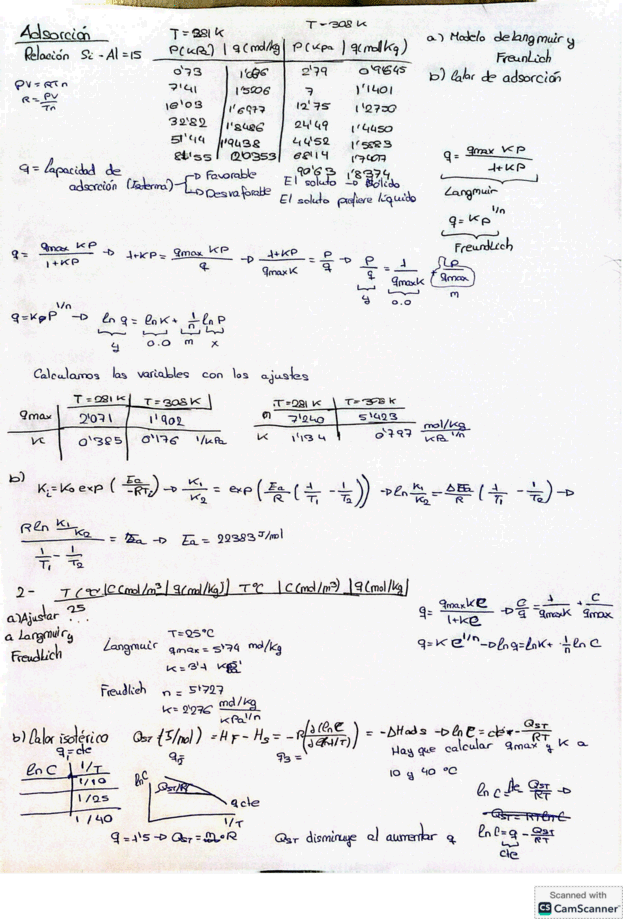 Adsorción
Relación Si-Al=15
T=281K
T=308K
P(kPa) | q(mol/kg) | P(kPa | q(mol/kg)
0'73 2'79 0'9645
7'41 1'5206 7 1'1401
1'6977 12'75 1'2750
32'82 1'8486 24'49 1'4450
51'44 1'9438 44'52 1'5583
2'0353 68'14 1'7407
90'63 1'8374
a) Modelo de Langmuir y
Freunlich
b) Calor de adsorción
PV=RTn
R=PV/Tn
q = Capacidad de
adsorción (Isoterma)
→ Favorable El soluto → Sólido
→ Desfavorable El soluto prefiere líquido
q = qmax KP / 1+KP
Langmuir
q = KP^1/n
Freundlich
q = qmax KP / 1+KP → 1+KP = qmax KP / q → 1+KP / qmax K = P/q → P/q = 1/qmax K + P/qmax
y o.o m
q=KP^1/n → ln q = ln K + 1/n ln P
y o.o m x
Calculamos las variables con los ajustes
T=281K | T=308K
qmax 2'071 | 1'902
K 0'385 | 0'176 1/kPa
T=281K
n 7'240 5'423
K 1'134 0'797 mol/kg kPa^1/n
b) Ki=K0 exp(Ea/-RTi) → K1/K2 = exp(Ea/R (1/T1 - 1/T2)) → ln K1/K2 = Ea/R (1/T1 - 1/T2) →
R ln K1/K2 / 1/T1 - 1/T2 = Ea → Ea = 22383 J/mol
2- T(°C | C(mol/m³ | q(mol/kg) | T°C | C(mol/m³) | q(mol/kg)
25 ...
a) Ajustar
a Langmuir y
Freudlich
Langmuir
T=25°C
qmax=5'74 mol/kg
K=3'1
Freudlich n=5'727
K=2'276 mol/kg kPa^1/n
q = qmax KC / 1+KC → C/q = 1/qmax K + C/qmax
q=K C^1/n → ln q = ln K + 1/n ln C
b) Calor isotérico QST (J/mol) = HF - HS = -R(∂(ln C)/∂(1/T)) = -ΔHads → ln C = cte - QST/RT
q=cte
Hay que calcular qmax y K a
10 y 40 °C
ln C | 1/T
1/10
1/25
1/40
ln C
QST/R
q cte
1/T
q=1'5 → QST = m·R
QST disminuye al aumentar q
ln C = cte - QST/RT →
ln C = q - QST/RT
cte
Scanned with
CS CamScanner